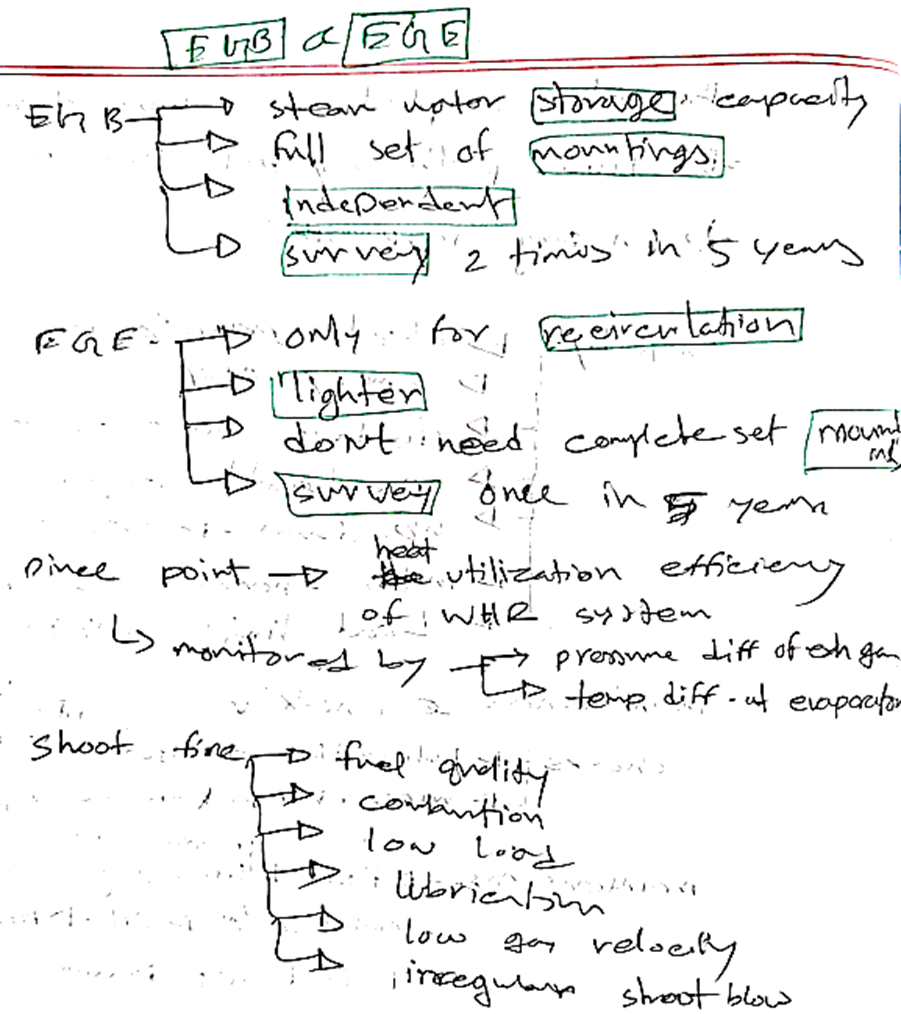 EGB & EGE
EGB → steam water storage capacity
→ full set of mountings.
→ independent
→ survey 2 times in 5 years
EGE → only for recirculation
→ lighter
→ don't need complete set mount
→ survey once in 5 years
Pince point → heat utilization efficiency
of WHR system
↳ monitored by → pressure diff of exh gas
→ temp. diff. at evaporator
Shoot fire → fuel quality
→ combustion
→ low load
→ lubrication
→ low gas velocity
→ irregular shoot blow